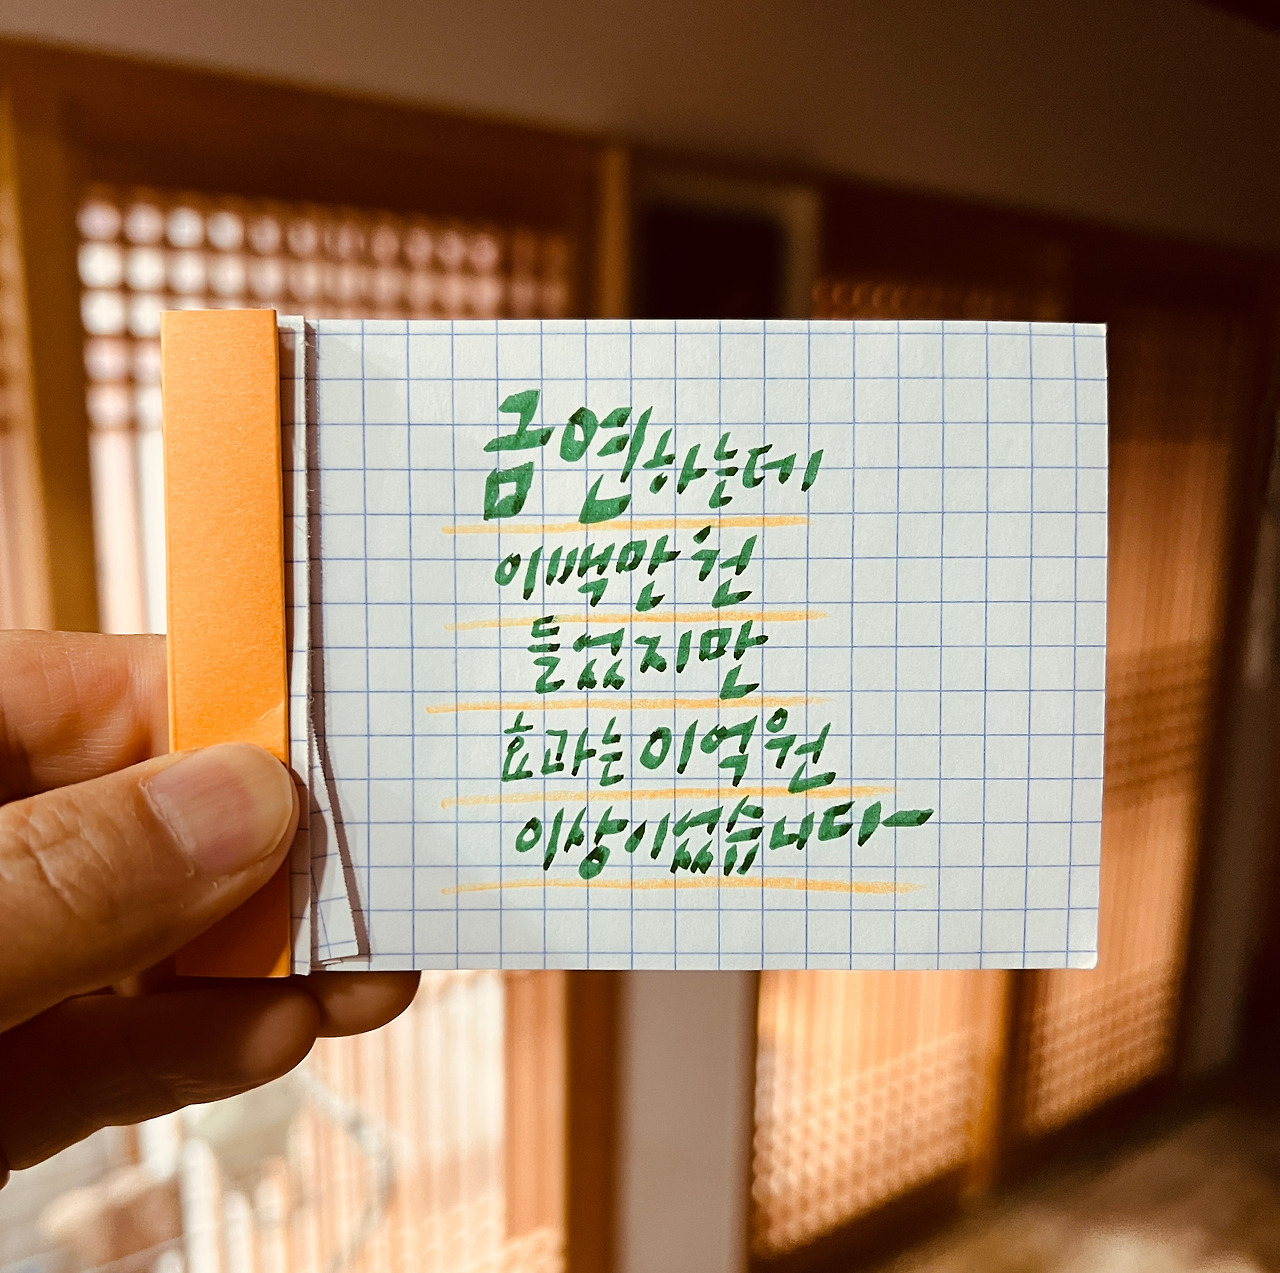 금연하는데
이백만 원
들었지만
효과는 이억 원
이상이었습니다~